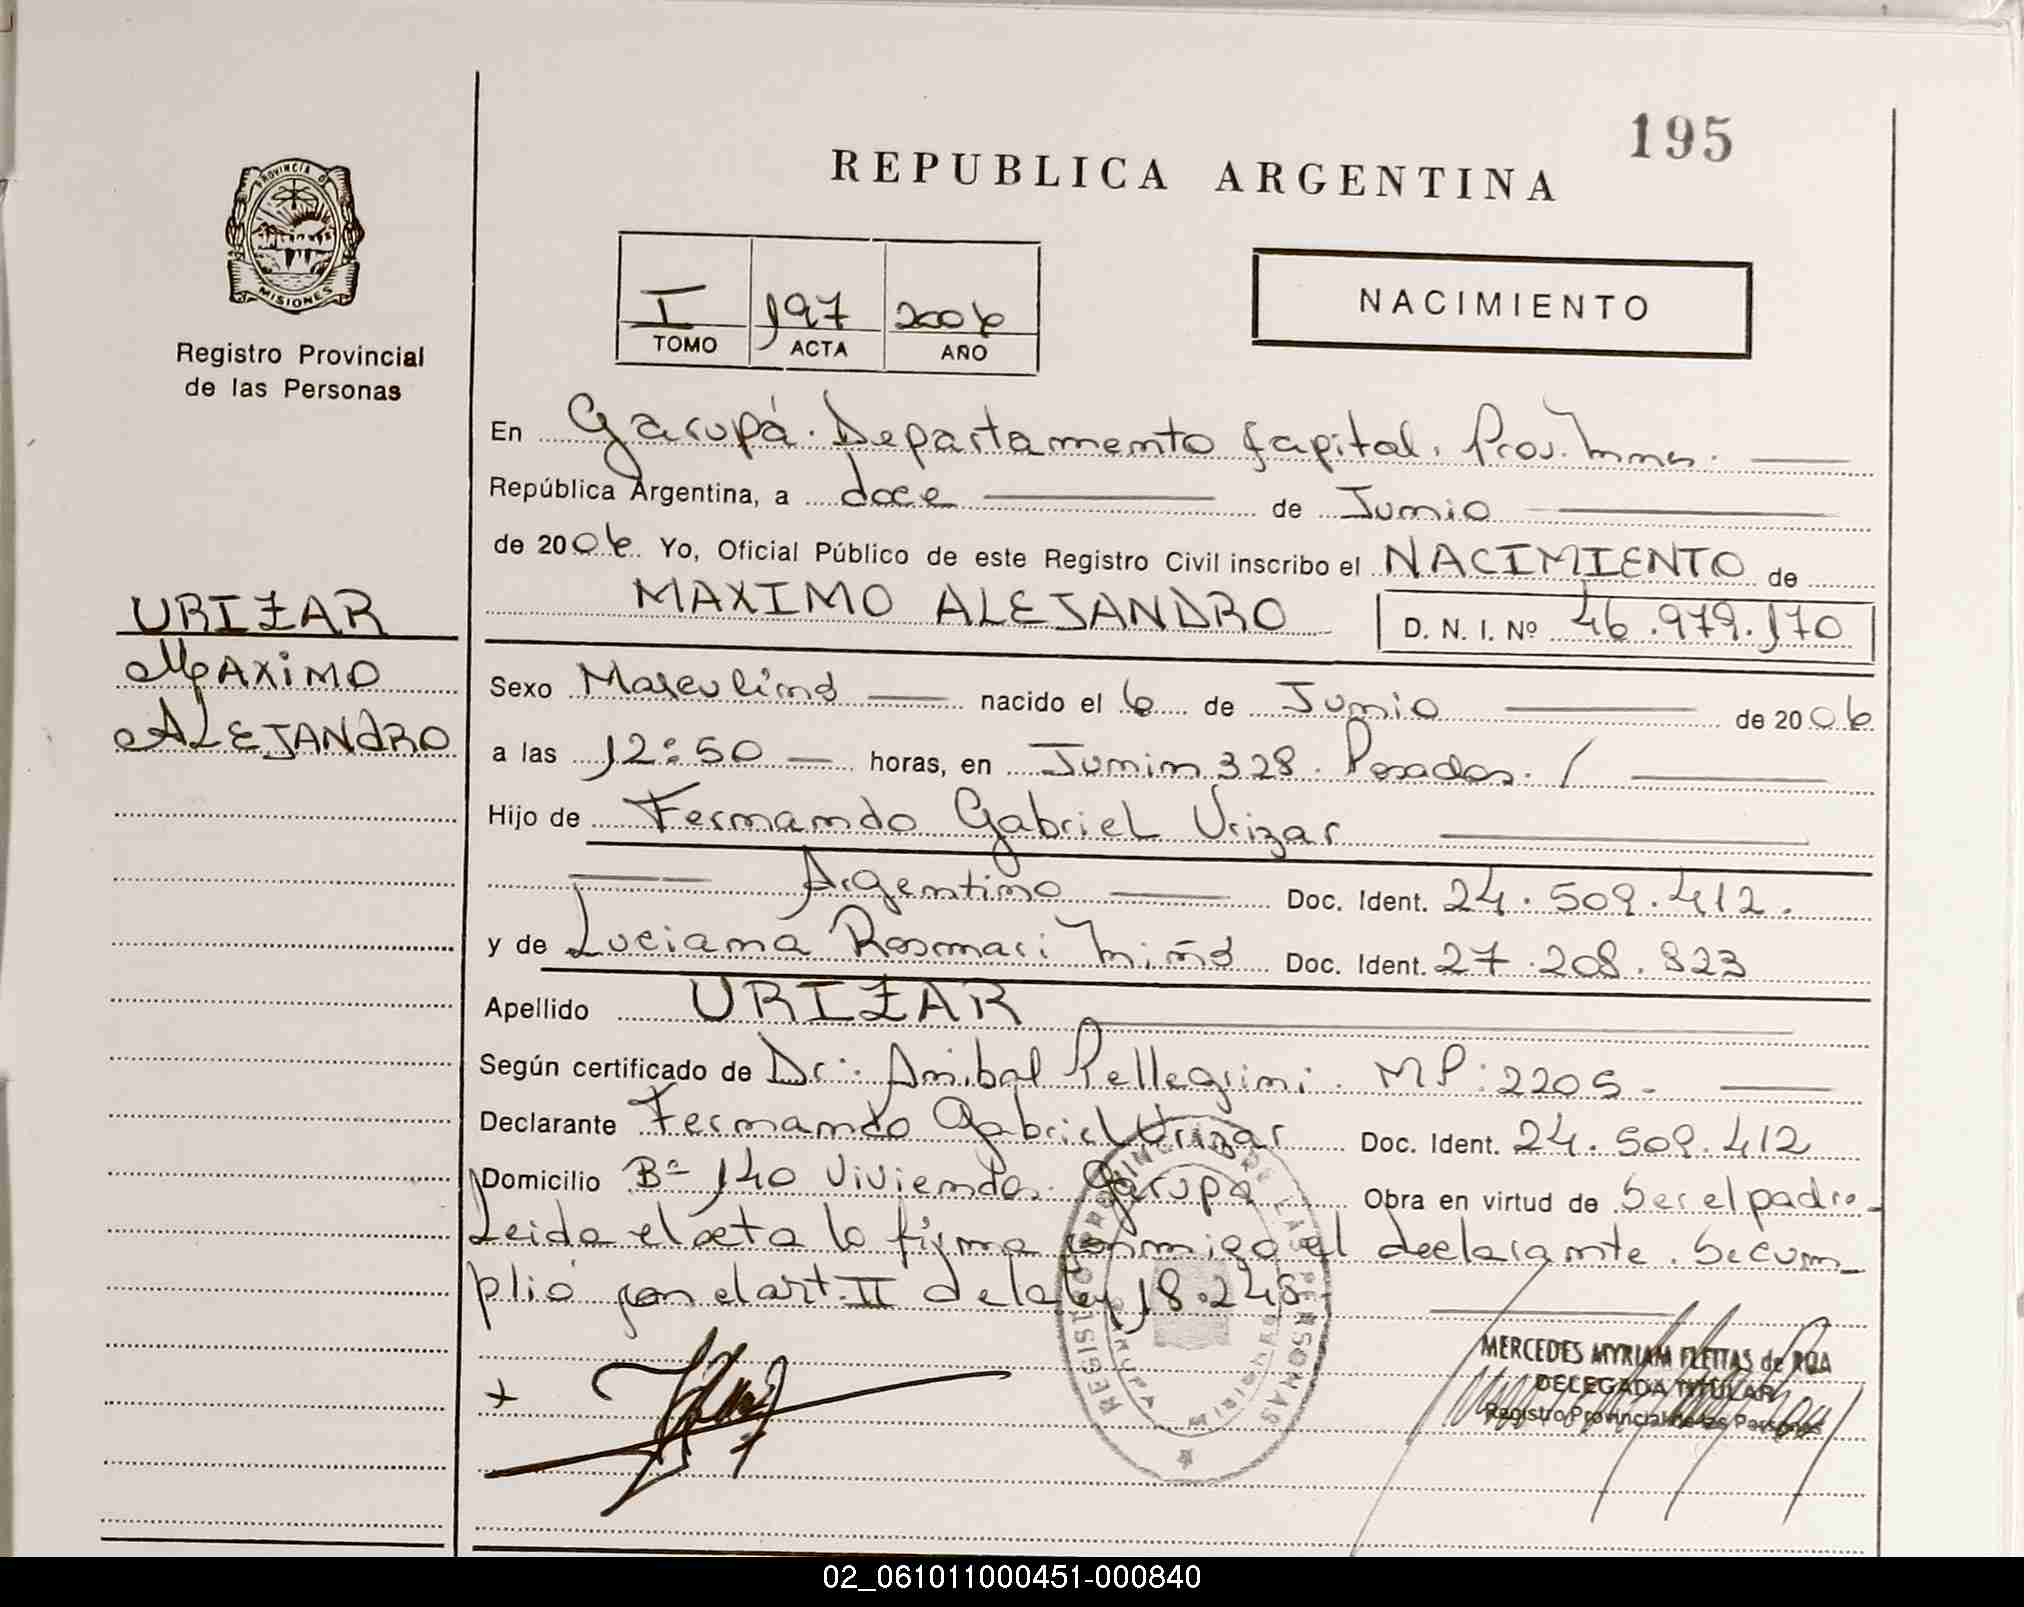 195
REPUBLICA ARGENTINA
PROVINCIA D
MISIONES
Registro Provincial
de las Personas
I 197 2006
TOMO ACTA AÑO
NACIMIENTO
En Garupá. Departamento Capital. Prov. Mnes.
República Argentina, a doce de Junio
de 2006 Yo, Oficial Público de este Registro Civil inscribo el NACIMIENTO de
MAXIMO ALEJANDRO D. N. I. Nº 46.979.170
URIZAR
MAXIMO
ALEJANDRO
Sexo Masculino nacido el 6 de Junio de 2006
a las 12:50 horas, en Junin 328. Posadas. /
Hijo de Fernando Gabriel Urizar
Argentino Doc. Ident. 24.509.412.
y de Luciana Rosmari Miño Doc. Ident. 27.208.823
Apellido URIZAR
Según certificado de Dr: Anibal Pellegrini. MP: 2205-
Declarante Fernando Gabriel Urizar Doc. Ident. 24.509.412
Domicilio Bº 140 Viviendas. Garupa Obra en virtud de Ser el padre-
Leida el acta la firma conmigo el declarante. Se cum-
plió con el art. II de la ley 18.248
REGISTRO PROVINCIAL DE LAS PERSONAS
GARUPA
MISIONES
MERCEDES MYRIAM FLEITAS de ROA
DELEGADA TITULAR
Registro Provincial de las Personas
02_061011000451-000840